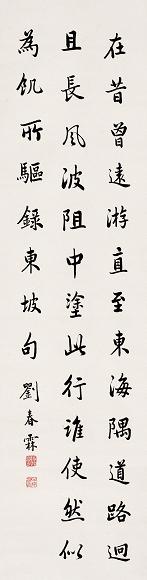 在昔曾遠游直至東海隅道路迥
且長風波阻中塗此行誰使然似
為飢所驅錄東坡句
劉春霖